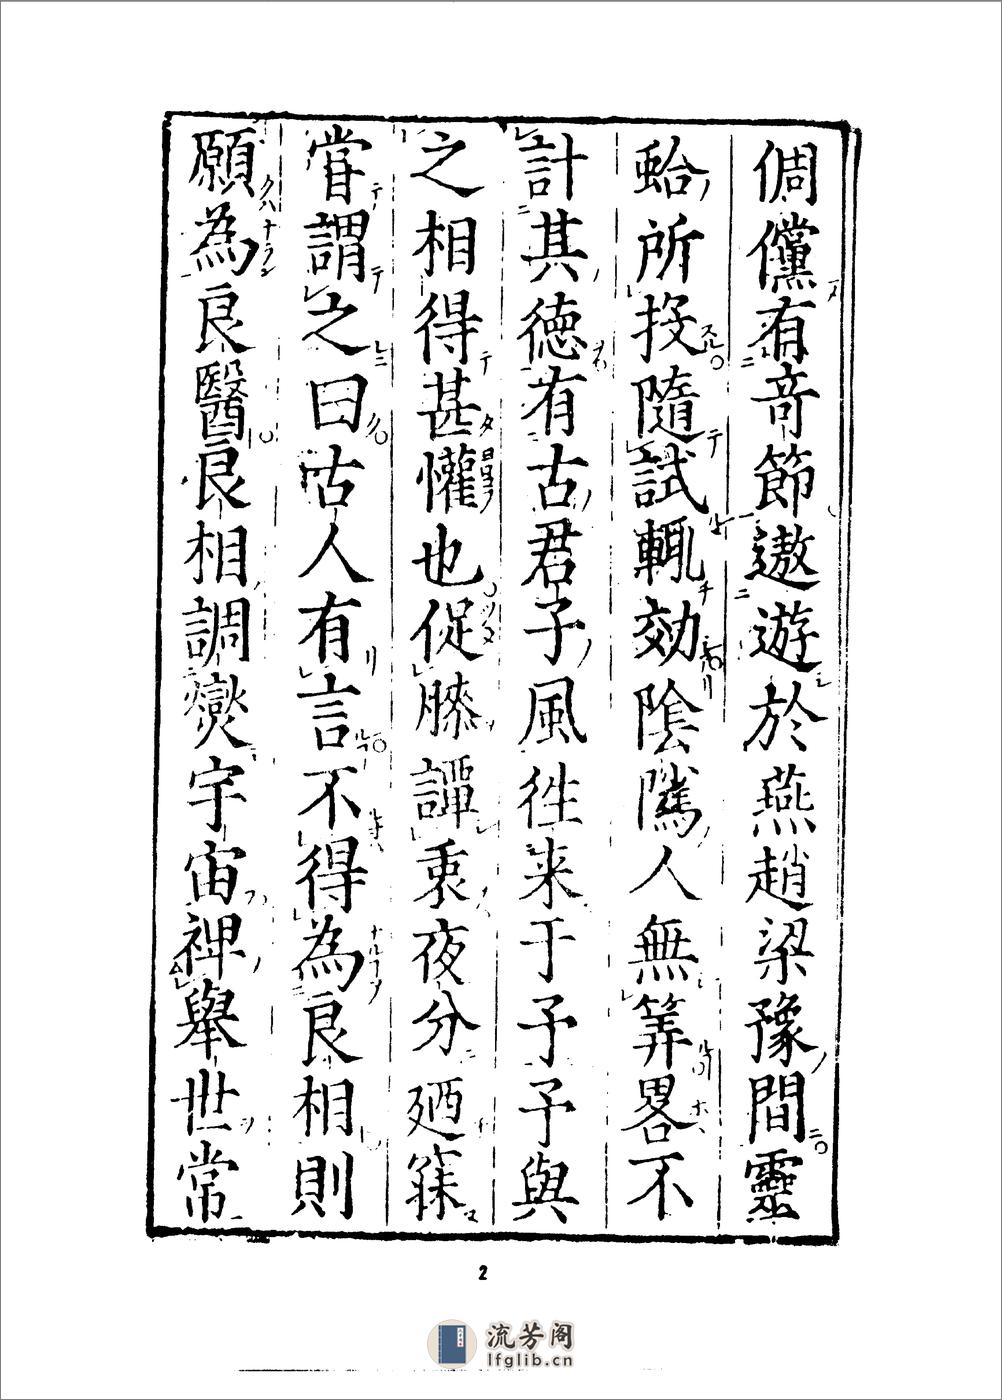 倜儻有竒節遨遊於燕趙梁豫間靈
蛤所投隨試輒効陰隲人無筭畧不
計其徳有古君子風徃来于予予與
之相得甚懽也促膝譚衷夜分廼寐
嘗謂之曰古人有言不得為良相則
願為良醫良相調爕宇宙禆舉世常
2
流芳阁
lfglib.cn